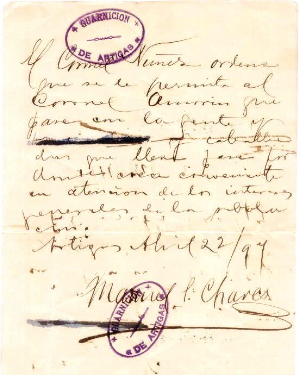 GUARNICION
DE ARTIGAS
El Coronel Nuñez ordena
que se le permita al
Coronel Amorin que
pase con la gente y
caballa
das que lleva para
donde crea conveniente
en atencion de los intereses
generales de la pobla
cion.
Artigas Abril 22/97
Manuel P. Chaves
GUARNICION
DE ARTIGAS